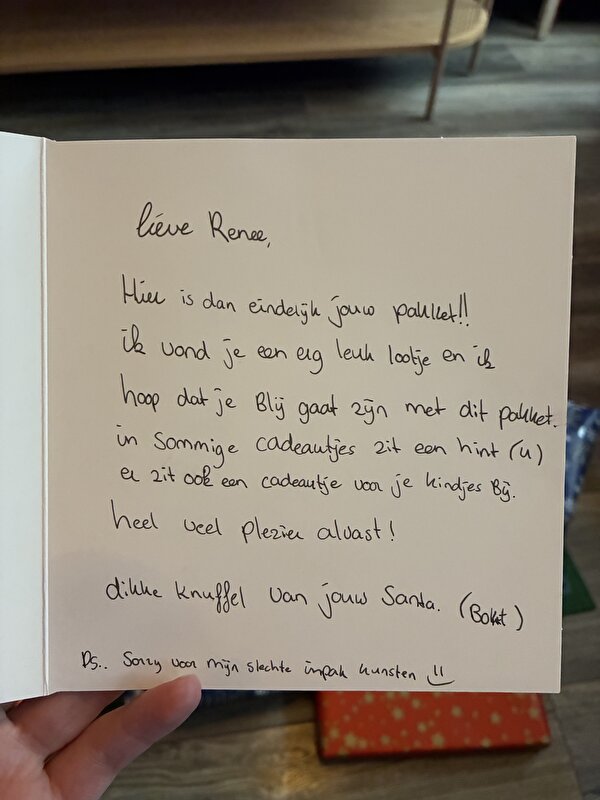 lieve Renee,
Hier is dan eindelijk jouw pakket!!
ik vond je een erg leuk lootje en ik
hoop dat je Blij gaat zijn met dit pakket.
in sommige cadeautjes zit een hint (4)
er zit ook een cadeautje voor je kindjes Bij.
heel veel plezier alvast!
dikke knuffel van jouw Santa. (Bokt)
Ps.. Sorry voor mijn slechte inpak kunsten